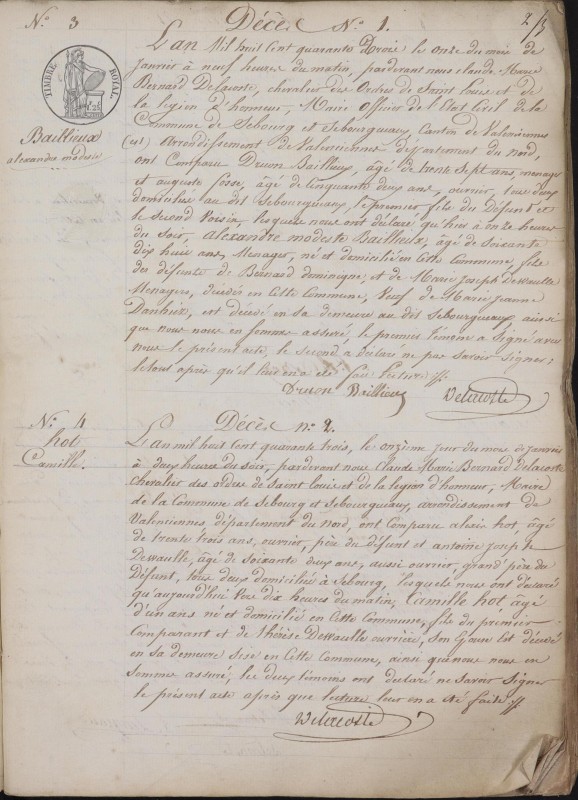 N.º 3
Décès N.º 1.
2/3
TIMBRE ROYAL
Baillieux
alexandre modeste
L'an Mil huit Cent quarante Trois le onze du mois de
Janvier à neuf heures du matin, pardevant nous Claude Marie
Bernard Delacoste, chevalier des Ordres de Saint Louis et de
la légion d'honneur, Maire Officier de l'Etat Civil de la
Commune de Sebourg et Sebourquiaux, Canton de Valenciennes
(Est) Arrondissement de Valenciennes département du Nord,
ont Comparu Druon Baillieux, âgé de trente Sept ans, menager
et auguste fosse, âgé de Cinquante deux ans, ouvrier, tous deux
domiciliés au dit Sebourquiaux, le premier fils du Défunt et
le Second Voisin, lesquels nous ont déclaré qu'hier à onze heures
du Soir, alexandre modeste Bailleux, âgé de Soixante
Dix huit ans, Menager, né et domicilié en Cette Commune, fils
des défunts de Bernard dominique, et de Marie Joseph Dewaulle
Menagers, décédés en Cette Commune, Veuf de Marie Jeanne
est décédé en Sa demeure au dit Sebourquiaux ainsi
que nous nous en sommes assuré, le premier témoin a Signé avec
nous le présent acte, le Second a déclaré ne pas Savoir Signer,
le tout après qu'il leur en a été fait Lecture
Druon Baillieux
Delacoste
N.º 4
hot
Camille.
Décès n.º 2.
L'an mil huit Cent quarante trois, le onzième jour du mois de Janvier
à deux heures du Soir, pardevant nous Claude Marie Bernard Delacoste
Chevalier des ordres de Saint Louis et de la légion d'honneur, Maire
de la Commune de Sebourg et Sebourquiaux, arrondissement de
Valenciennes département du Nord, ont Comparu hot, âgé
de trente trois ans, ouvrier, père du défunt et antoine Joseph
Dewaulle, âgé de Soixante deux ans, aussi ouvrier, grand père du
Défunt, tous deux domiciliés à Sebourg, lesquels nous ont déclaré
qu'aujourd'hui Vers dix heures du matin, Camille hot, âgé
d'un ans né et domicilié en Cette Commune, fils du premier
Comparant et de thérèse Dewaulle ouvrière, son épouse est décédé
en sa demeure sise en Cette Commune, ainsi que nous nous en
Sommes assuré, les deux témoins ont déclaré ne Savoir Signer
le présent acte après que lecture leur en a été faite
Delacoste